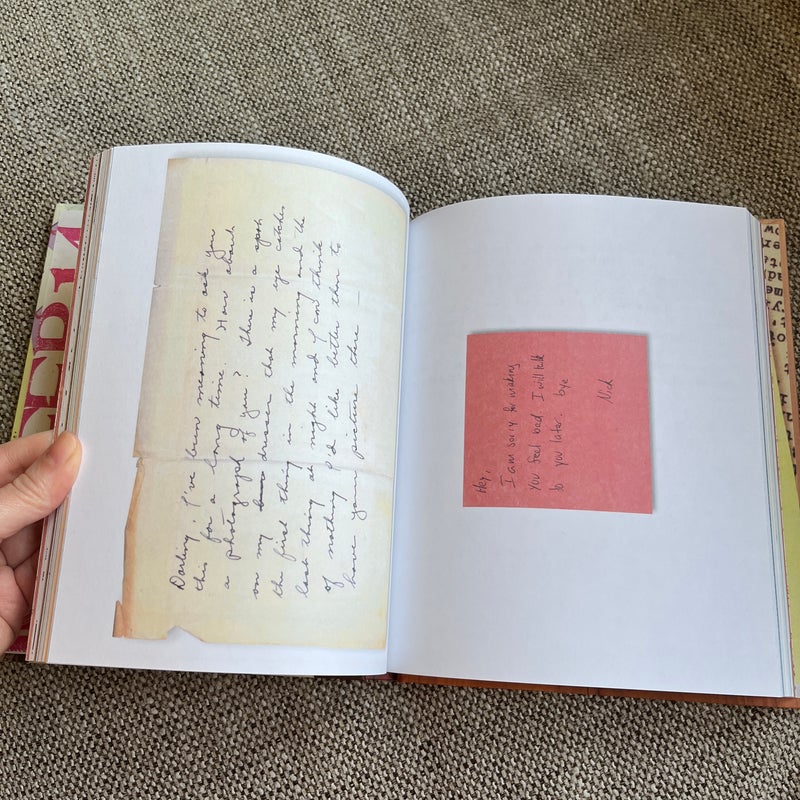 Darling, I've been meaning to ask you
this for a long time. How about
a photograph of you? There is a spot
on my dresser that my eye catches
the first thing in the morning and the
last thing at night and I can think
of nothing I'd like better than to
have your picture there —
Hey,
I am sorry for making
you feel bad. I will talk
to you later. bye
Nick